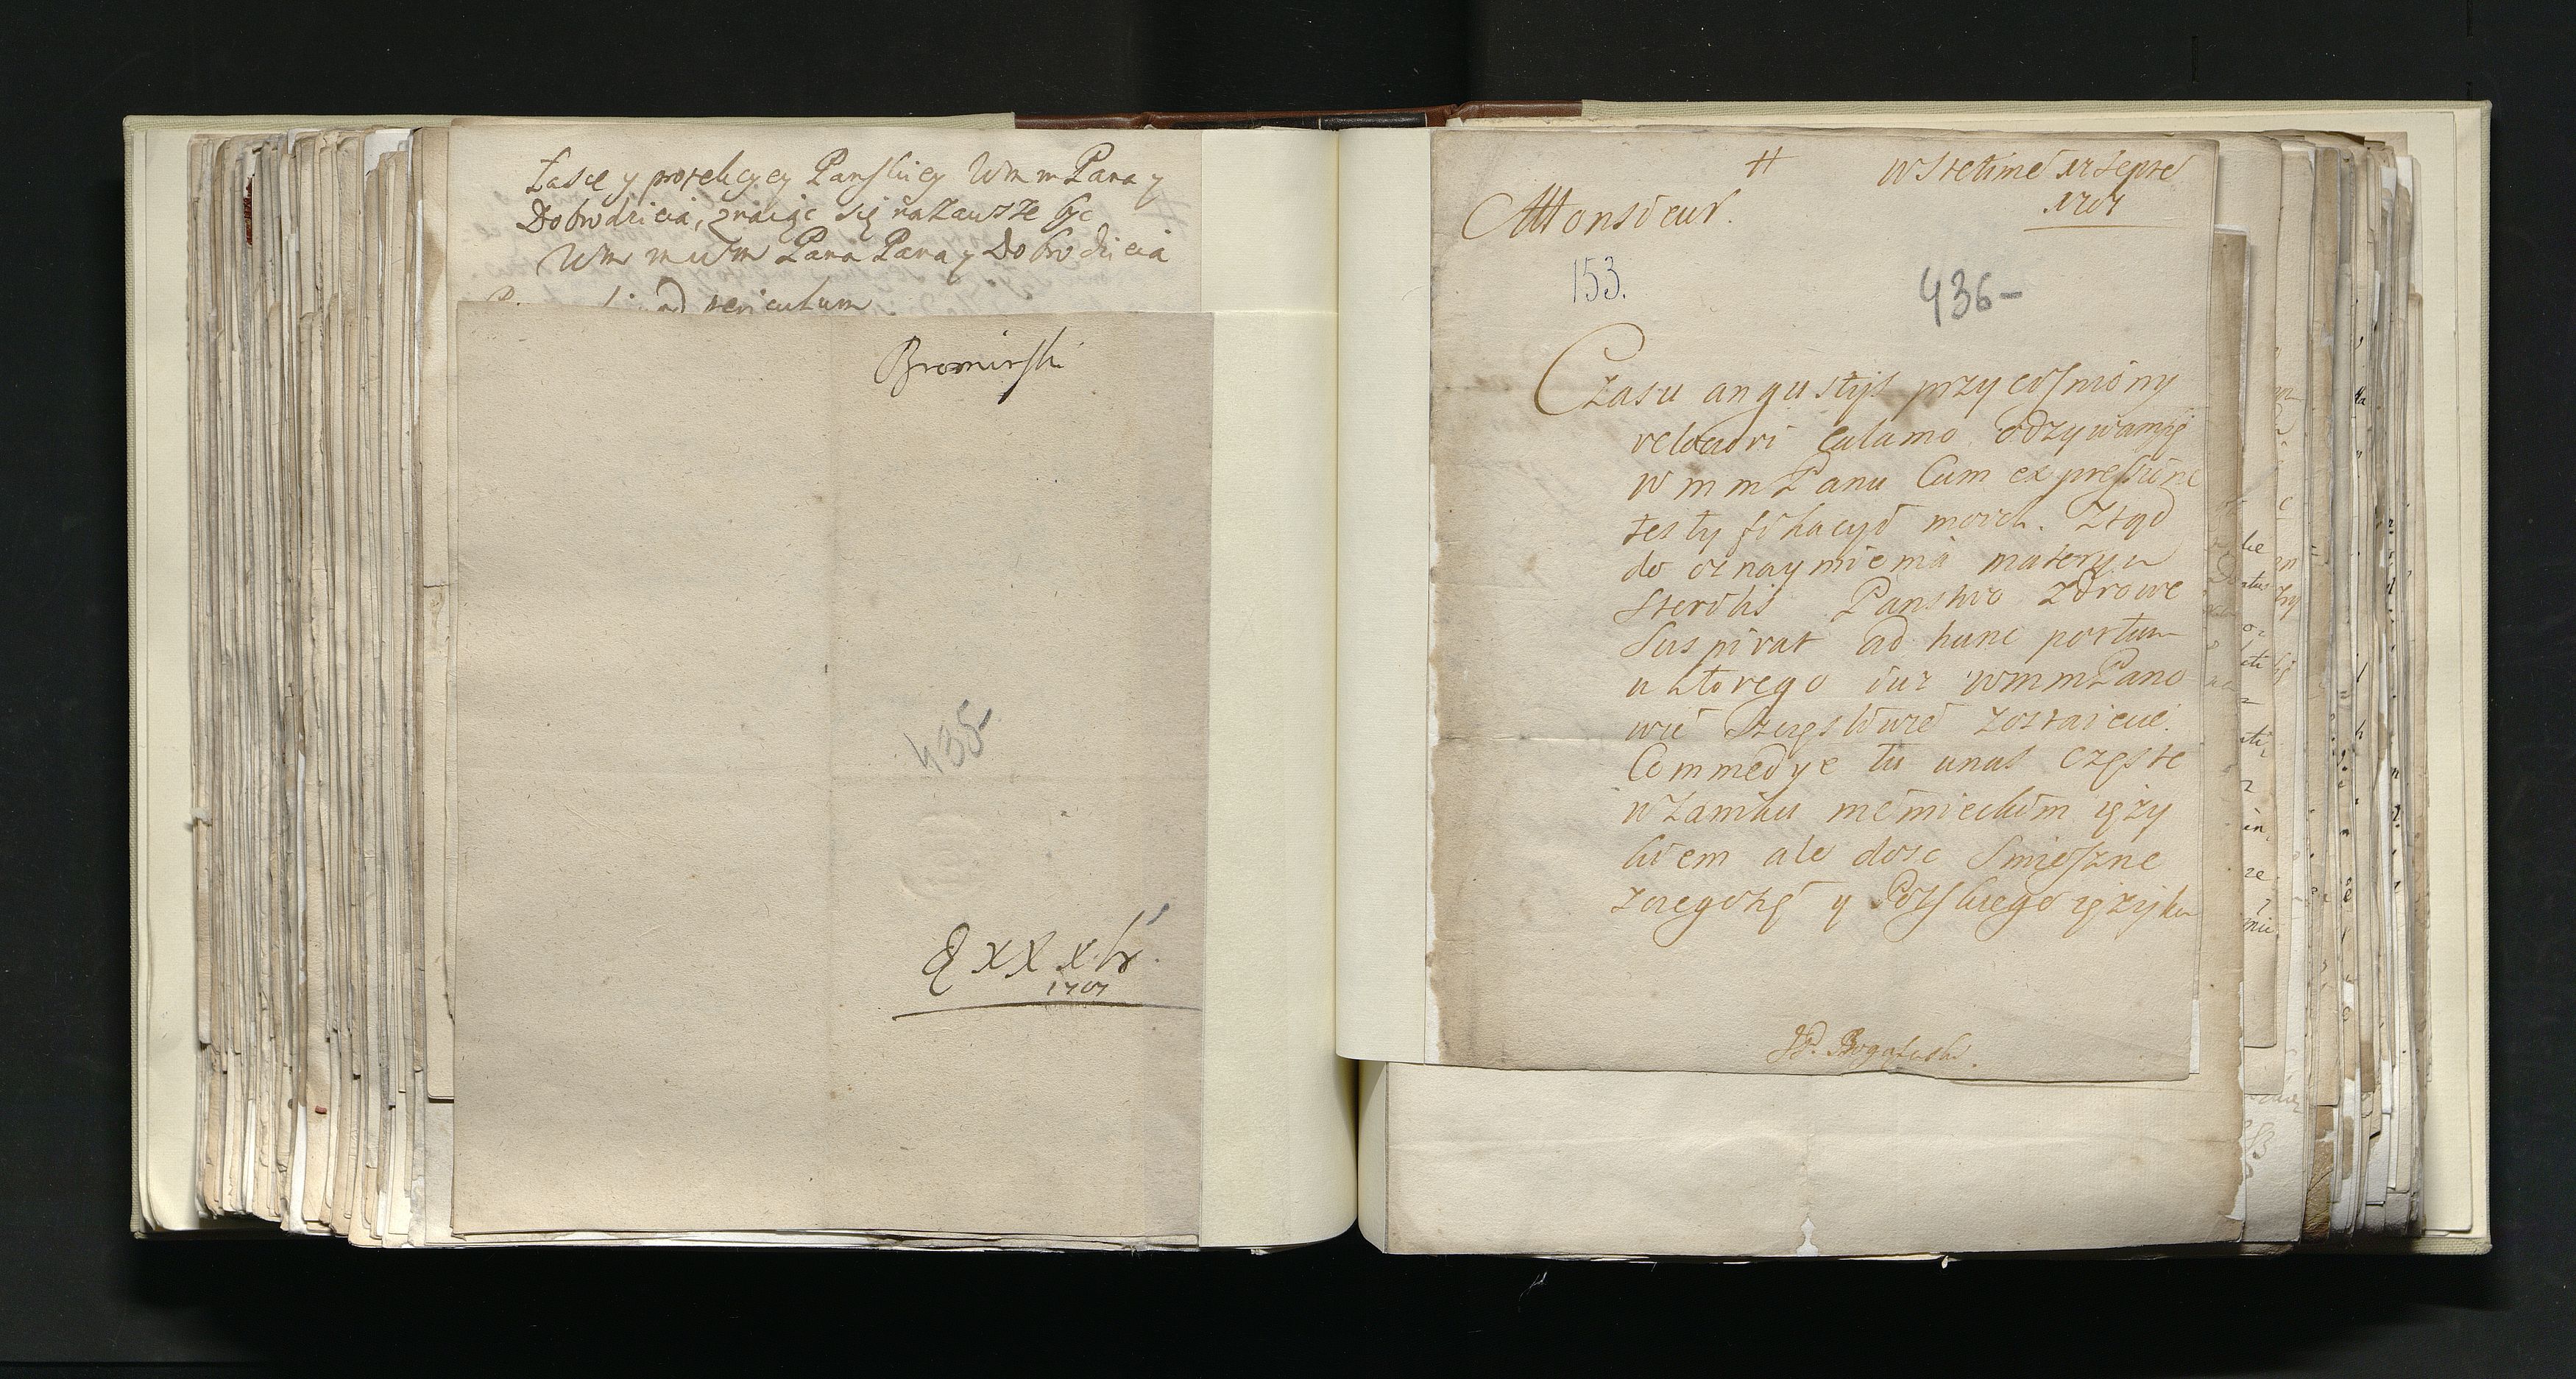 Łasce y protekcyey Panskiey Wm m Pana y
Dobrodzieia, znaiąc się na Zawsze byc
Wm m Wm Pana Pana y Dobrodzieia
ad periculum
Bromirski
435
1707
#
w Stetinie 12 Septe
1707
Monsieur.
153.
436-
Czasu angustys przycisniony
velociori calamo odzywamsię
w m m Panu Cum expressione
testyfikacyi moich. Ztąd
do oznaymienia materya
sterilis Panstwo zdrowe
Suspirat ad hunc portum
u ktorego iuz wmmPano
wie szczęsliwie zostaiecie.
Commedye tu unas częste
w Zamku niemieckim ięzy
kiem ale dosc smieszne
y Polskiego ięzyka